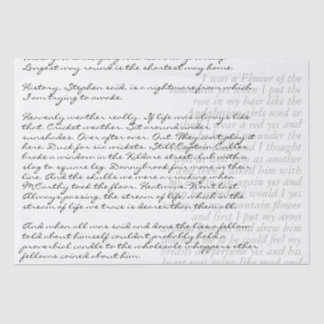 Longest way round is the shortest way home.
History, Stephen said, is a nightmare from which
I am trying to awake.
Heavenly weather really. If life was always like
that. Cricket weather. Sit around under
sunshades. Over after over. Out. They can't play it
here. Duck for six wickets. Still Captain Culler
broke a window in the Kildare street club with a
slog to square leg. Donnybrook fair more in their
line. And the skulls we were acracking when
M'Carthy took the floor. Heatwave. Won't last.
Always passing, the stream of life, which in the
stream of life we trace is dearer than them all.
And when all was said and done the lies a fellow
told about himself couldn't probably hold a
proverbial candle to the wholesale whoppers other
fellows coined about him.
I was a Flower of the
when I put the
rose in my hair like the
Andalusian girls used or
wear a red yes and
I thought
as another
him with
again yes and
would I yes
mountain flower
and first I put my arms
drew
he could feel my
breasts all perfume yes and his
was going like mad and